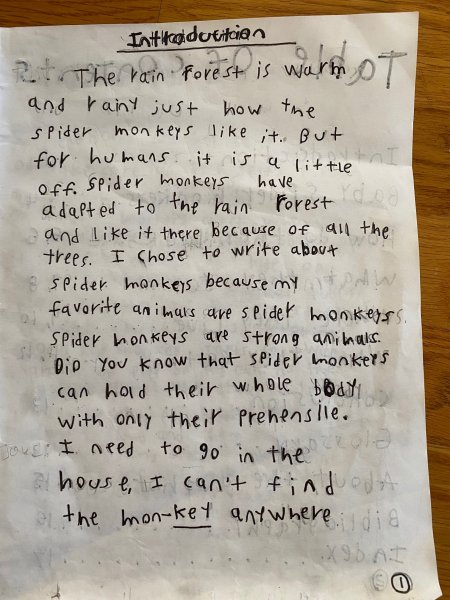 Introduction
The rain forest is warm
and rainy just how the
spider monkeys like it. But
for humans it is a little
off. spider monkeys have
adapted to the rain forest
and like it there because of all the
trees. I chose to write about
spider monkeys because my
favorite animals are spider monkeys.
spider monkeys are strong animals.
Did you know that spider monkeys
can hold their whole body
with only their prehensile.
I need to go in the
house, I can't find
the mon-key anywhere
1